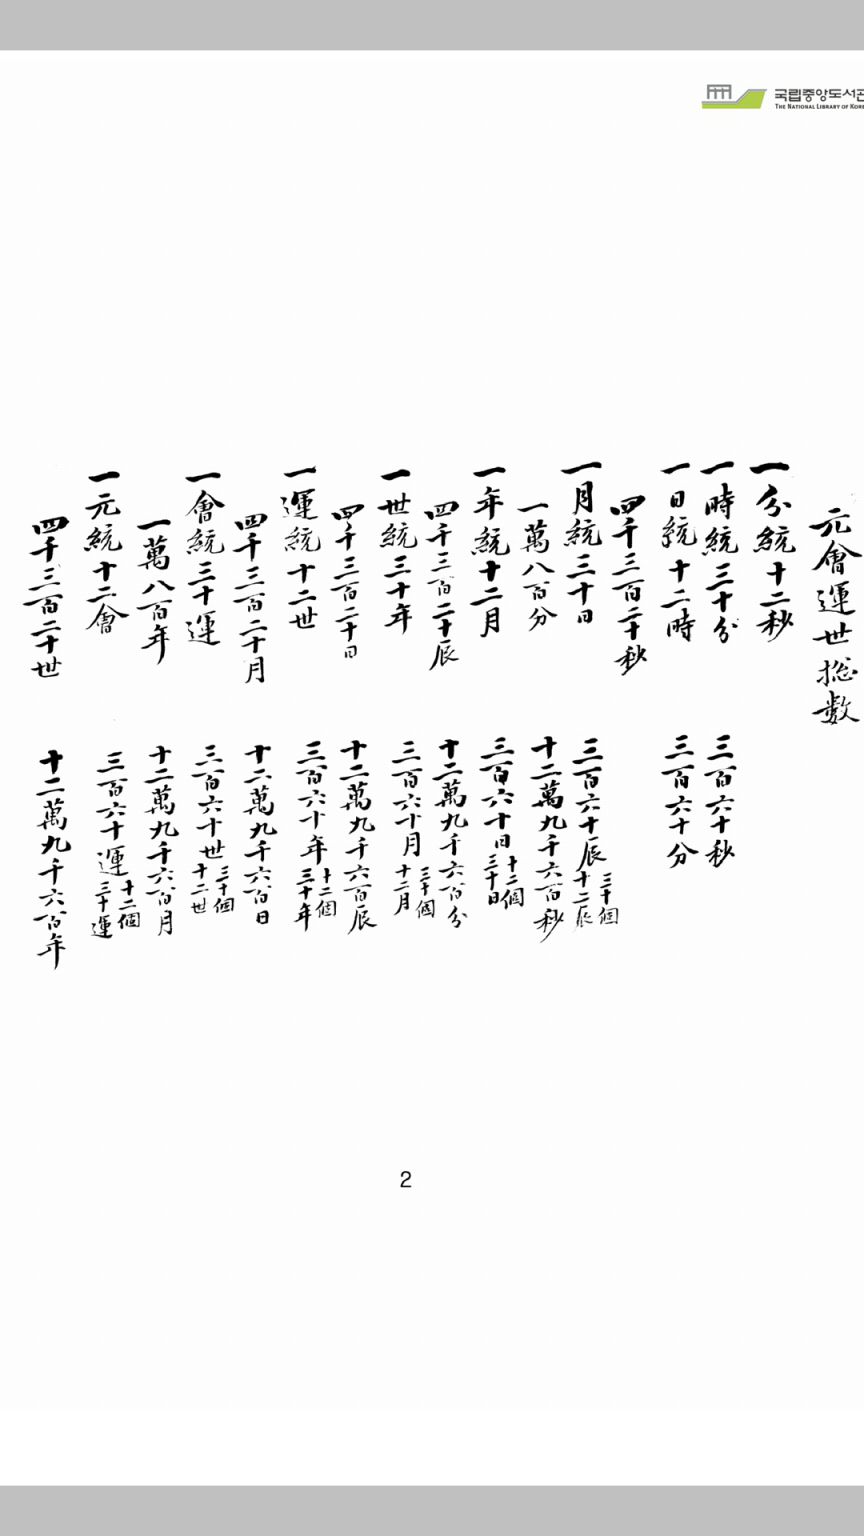 국립중앙도서관
THE NATIONAL LIBRARY OF KOREA
元會運世摠數
一分統十二秒
一時統三十分 三百六十秒
一日統十二時 三百六十分
四千三百二十秒
一月統三十日 三百六十辰 三十個十二辰
一萬八百分 十二萬九千六百秒
一年統十二月 三百六十日 十二個三十日
四千三百二十辰 十二萬九千六百分
一世統三十年 三百六十月 三十個十二月
四千三百二十日 十二萬九千六百辰
一運統十二世 三百六十年 十二個三十年
四千三百二十月 十二萬九千六百日
一會統三十運 三百六十世 三十個十二世
一萬八百年 十二萬九千六百月
一元統十二會 三百六十運 十二個三十運
四千三百二十世 十二萬九千六百年
2